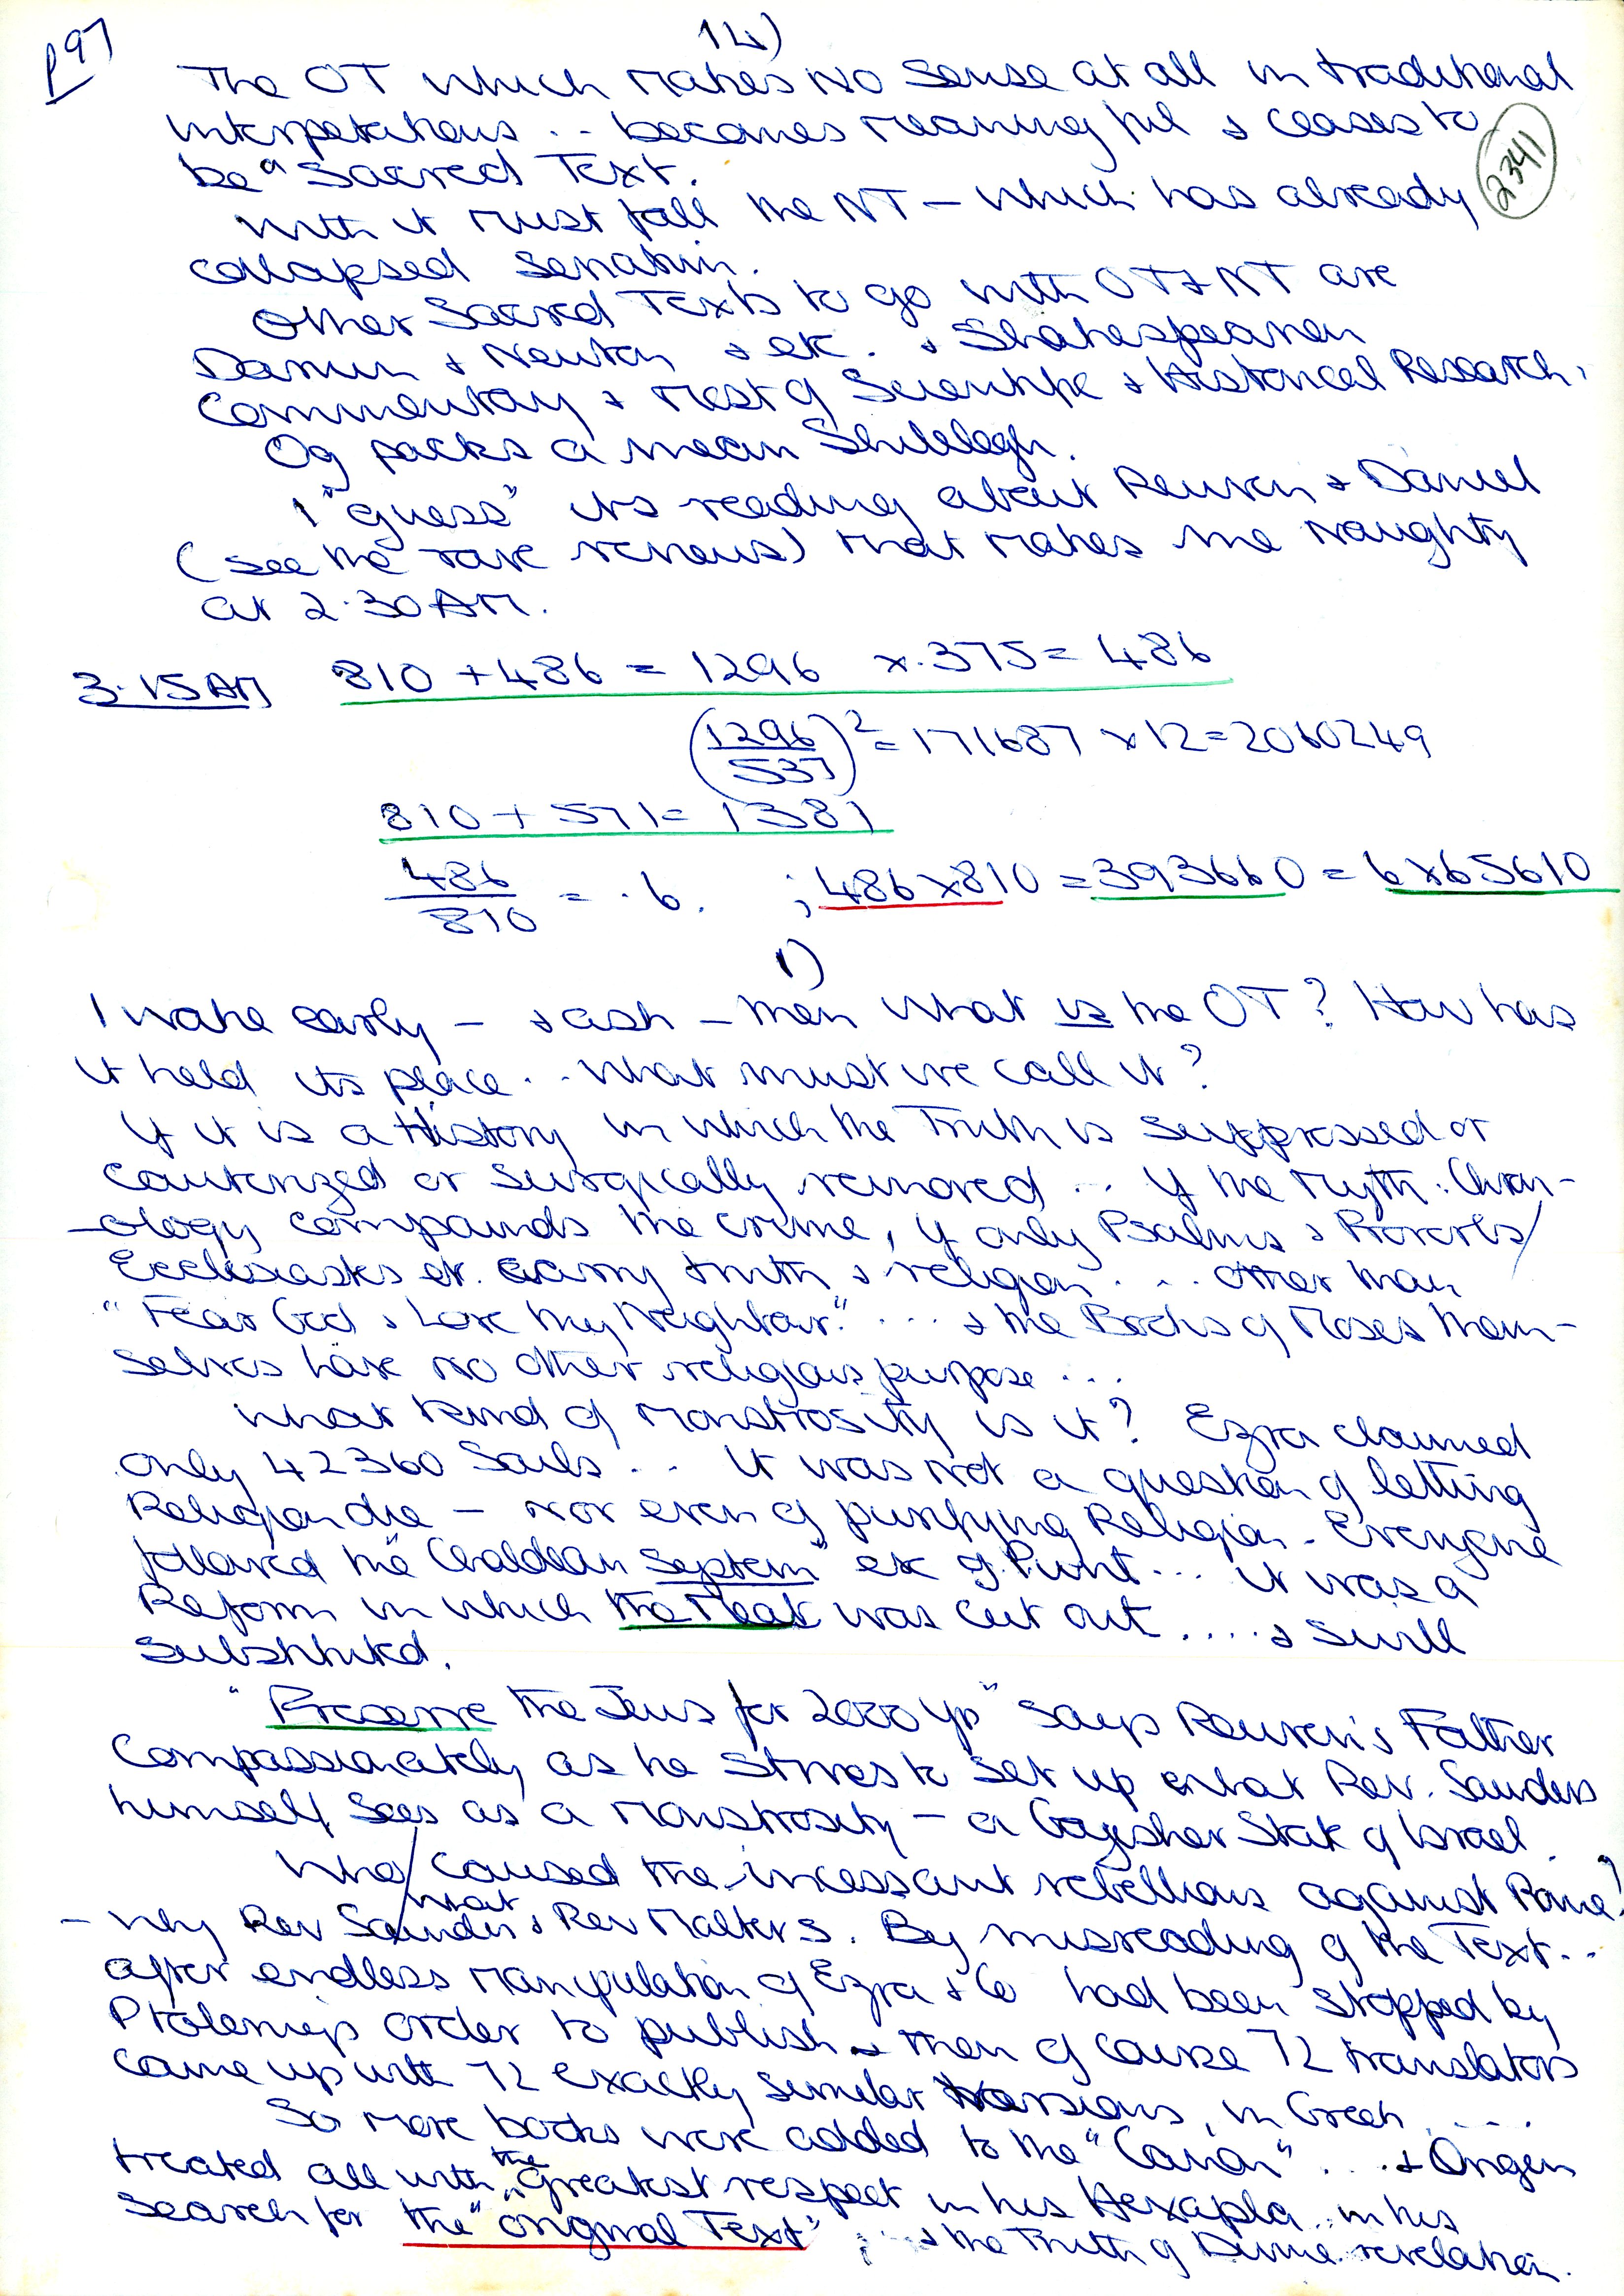 p97
14)
The OT which makes no sense at all in traditional
interpretations .. becomes meaningful & ceases to
be "Sacred Text.
2341
With it must fall the NT – which has already
collapsed seriatim.
Other Sacred Texts to go with OT & NT are
Darwin & Newton & etc. & Shakespearean
Commentary & most of Scientific & Historical Research.
Og packs a mean Shillelagh.
I "guess" its reading about Reuven & Daniel
(see the rave reviews) that makes me naughty
at 2.30 AM.
3.15 AM 810 + 486 = 1296 x .375 = 486
(1296/537)² = 171687 x 12 = 2060249
810 + 571 = 1381
486/810 = .6. ; 486 x 810 = 393660 = 6 x 65610
1)
I wake early – & ask – then what is the OT? How has
it held its place .. What must we call it?
If it is a History in which the Truth is suppressed or
cauterized or surgically removed ... if the Myth: Chron-
-ology compounds the crime, if only Psalms & Proverbs/
Ecclesiastes etc. carry truth & religion ... other than
"Fear God & Love thy Neighbour." .... & the Books of Moses them-
selves have no other religious purpose ...
What kind of monstrosity is it? Ezra claimed
only 42360 Souls .. It was not a question of letting
Religion die – nor even of purifying Religion. Everyone
followed the "Chaldean System" etc of Punt ... it was a
Reform in which the Meat was cut out .... & Swill
substituted.
"Preserve the Jews for 2000 yrs" says Reuven's Father
compassionately as he strives to set up what Rev. Saunders
himself sees as a monstrosity – a Goyisher State of Israel.
Who/what caused the incessant rebellions against Rome?
– why Rev Saunders & Rev Malters. By misreading of the Text ..
after endless manipulation of Ezra & Co had been stopped by
Ptolemy's order to publish & then of course 72 translators
came up with 72 exactly similar versions, in Greek ....
So more books were added to the "Canon" ... & Origen
treated all with the greatest respect in his Hexapla .. in his
search for the "original Text" ; & the Truth of Divine revelation.